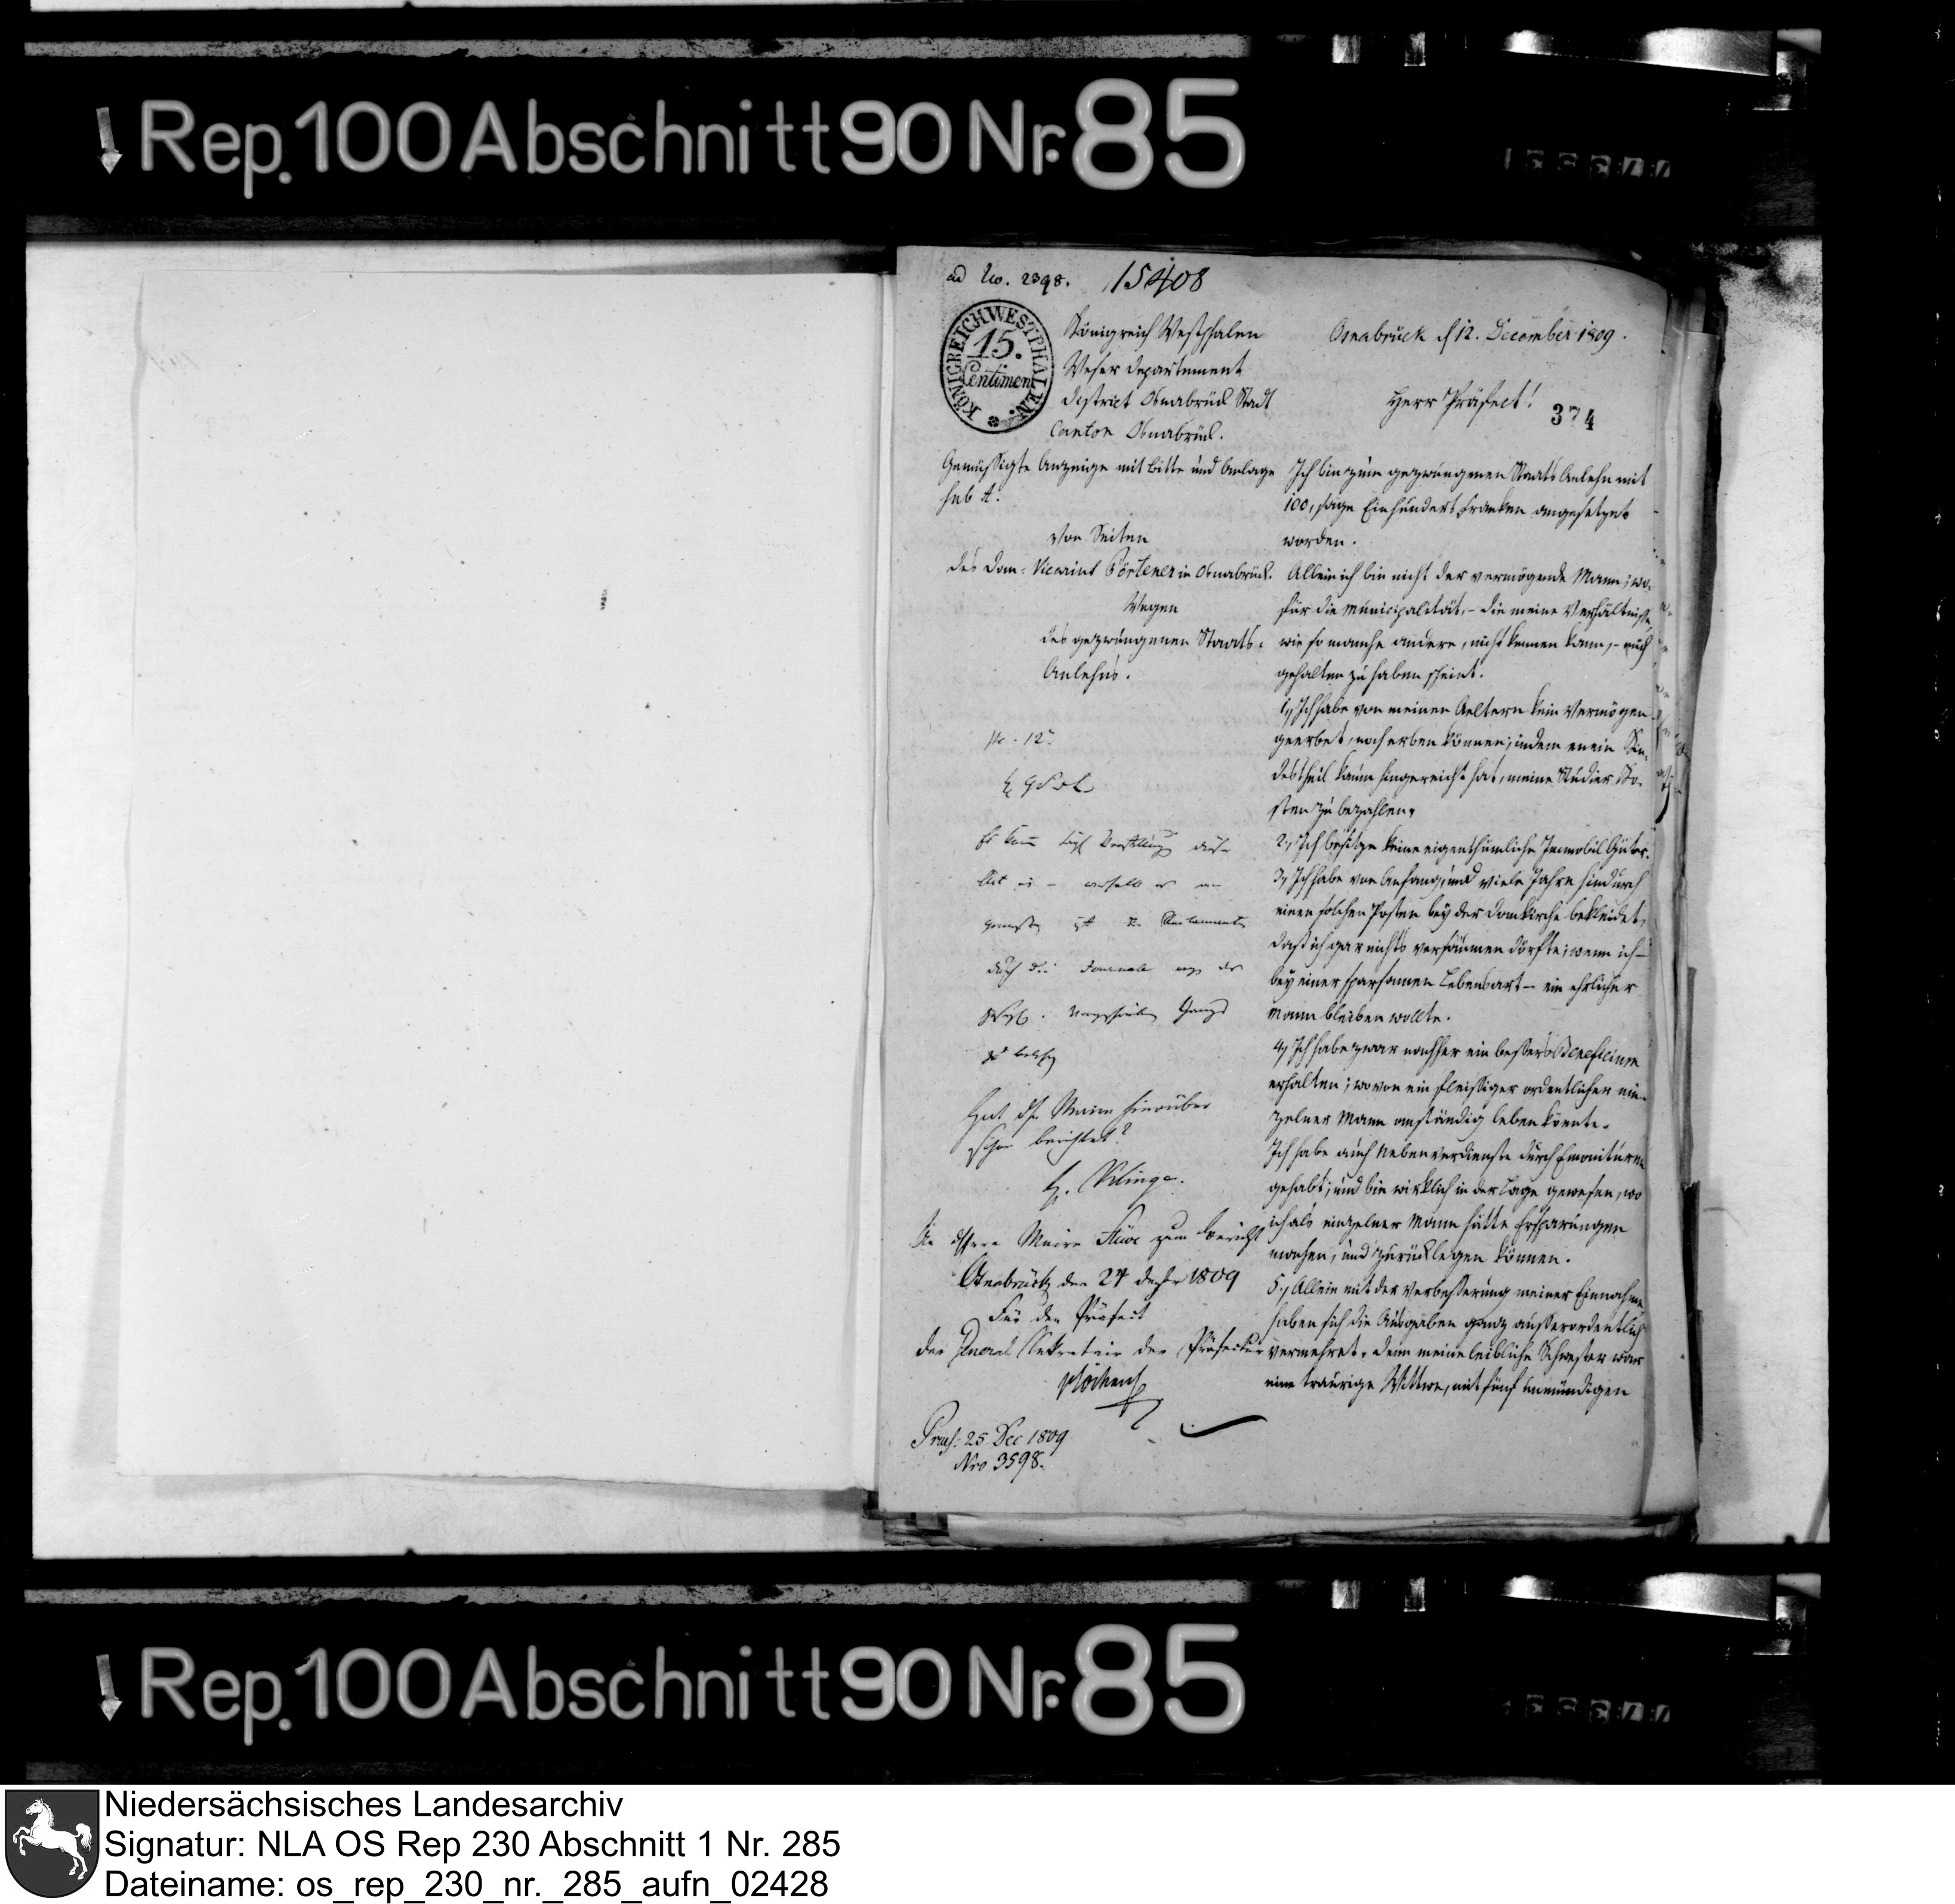 Rep. 100 Abschnitt 90 Nr. 85
ad No. 2398. 15408
KÖNIGREICH WESTPHALEN
15.
Centimen
Königreich Westphalen
Weser Departement
District Osnabrück Stadt
Canton Osnabrück.
Gemüssigte Anzeige mit Bitte und Anlage
sub A.
Von Seiten
des Dom-Vicarius Pörtener in Osnabrück.
Wegen
des gezwungenen Staats-
Anlehns.
Osnabrück d 12. December 1809.
Herr Präfect!
374
Ich bin zum gezwungenen Staats Anlehn mit
100, sage Einhundert Franken angesetzet
worden.
Allein ich bin nicht der vermögende Mann; wo-
für die Municipalität, – die meine Verhältnisse,
wie so manche andere, nicht kennen kann, – mich
gehalten zu haben scheint.
1, Ich habe von meinen Aeltern kein Vermögen
geerbet, noch erben können; indem mein Kin-
destheil kaum hingereicht hat, meine Studier Ko-
sten zu bezahlen.
2, Ich besitze keine eigenthümliche Immobil Güter.
3, Ich habe von Anfang, und viele Jahre hindurch
einen solchen Posten bey der Domkirche bekleidet,
daß ich gar nichts versäumen dörfte; wenn ich –
bey einer sparsamen Lebensart – ein ehrlicher
Mann bleiben wollte.
4, Ich habe zwar nachher ein besseres Beneficium
erhalten; wovon ein fleissiger ordentlicher ein-
zelner Mann anständig leben könnte.
Ich habe auch Nebenverdienste durch
gehabt; und bin wirklich in der Lage gewesen, wo
ich als einzelner Mann hätte Ersparungen
machen, und zurücklegen können.
5, Allein mit der Verbesserung meiner Einnahme
haben sich die Ausgaben ganz ausserordentlich
vermehret. Denn meine leibliche Schwester war
eine traurige Wittwe, mit fünf unmündigen
Hat der Maire hierüber
schon berichtet?
An Herrn Maire Stüve zum Bericht
Osnabrück den 24 decbr 1809
Für den Präfect
der General Sekretair der Präfectur
Praes: 25 Dec 1809
Nro 3598.
Rep. 100 Abschnitt 90 Nr. 85
Niedersächsisches Landesarchiv
Signatur: NLA OS Rep 230 Abschnitt 1 Nr. 285
Dateiname: os_rep_230_nr._285_aufn_02428